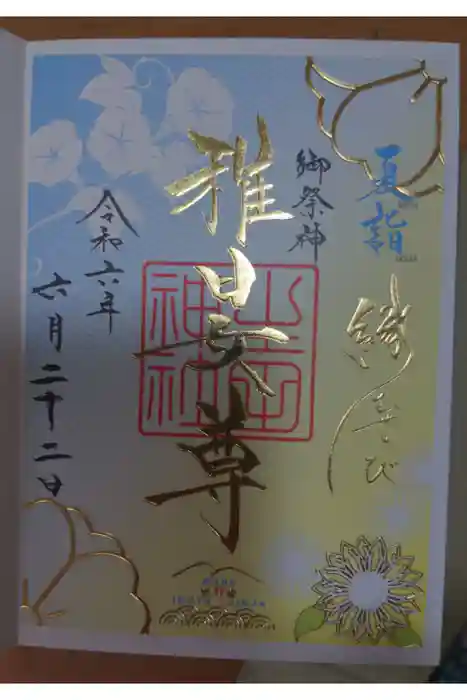 夏詣
縁むすび
御祭神
稚日女尊
神社
令和六年
六月二十二日